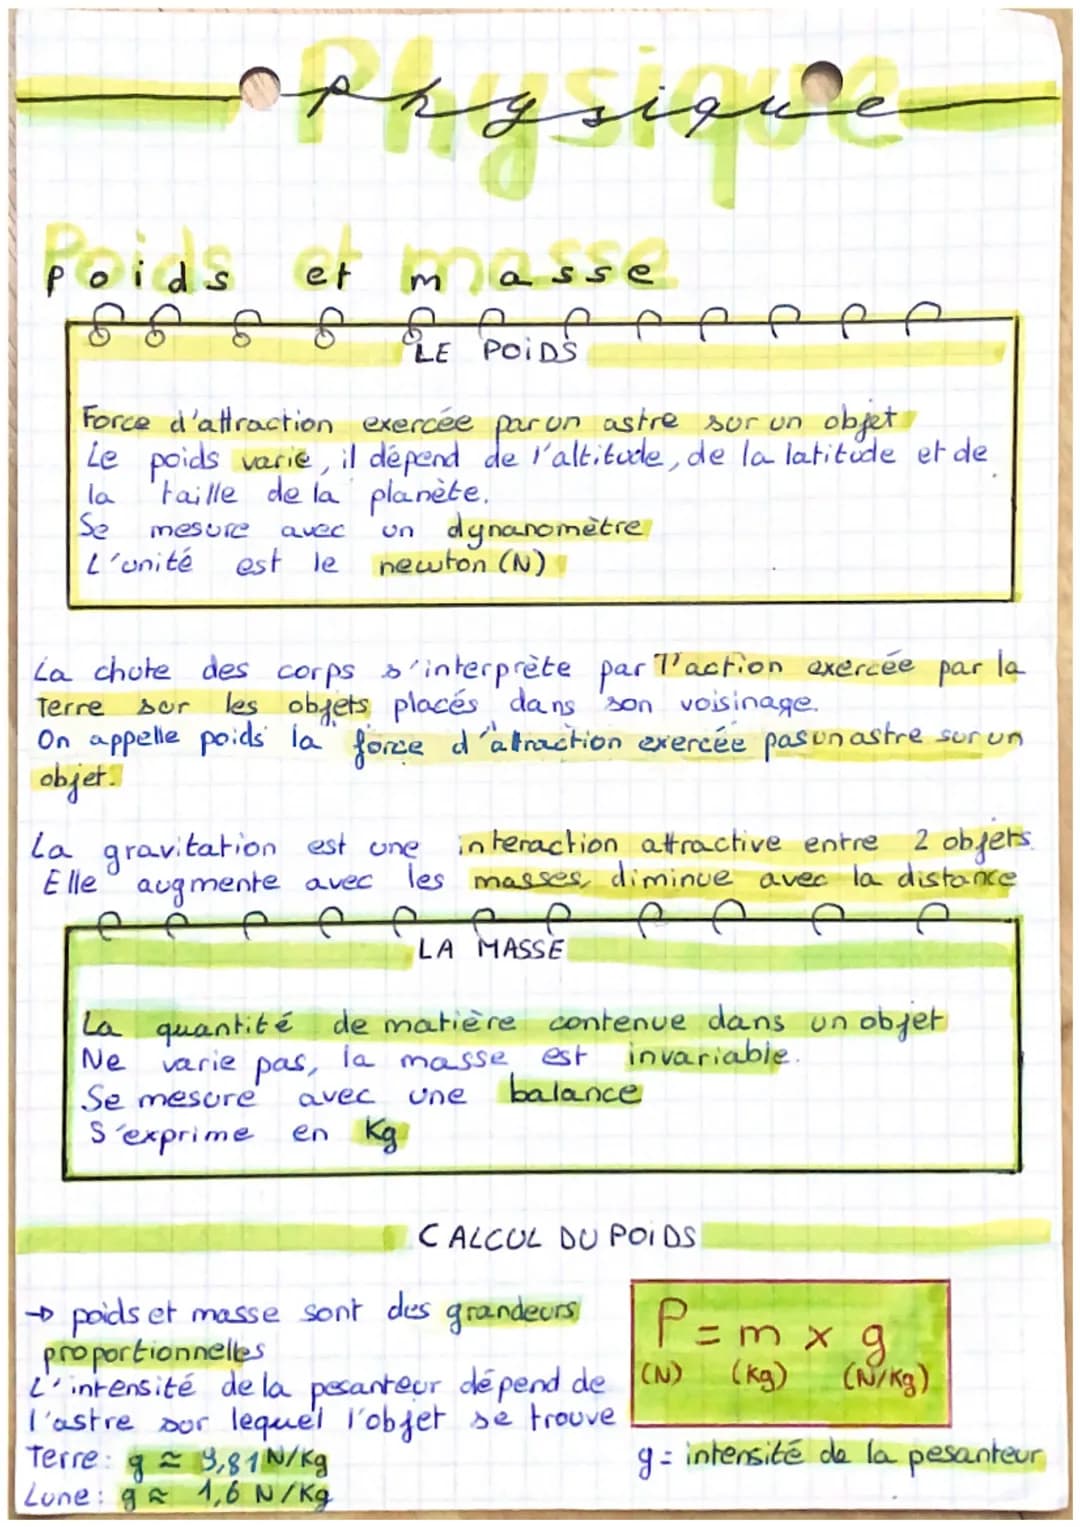 Physique
Physique
Poids et masse
Poids et masse
LE POiDS
Force d'attraction exercée par un astre sur un objet
Le poids varie, il dépend de l'altitude, de la latitude et de
la taille de la planète.
Se mesure avec un dynanomètre
L'unité est le newton (N)
La chute des corps s'interprète par l'action exercée par la
Terre sur les objets placés dans son voisinage.
On appelle poids la force d'attraction exercée pas un astre sur un
objet.
La gravitation est une interaction attractive entre 2 objets.
Elle augmente avec les masses, diminue avec la distance
LA MASSE
La quantité de matière contenue dans un objet
Ne varie pas, la masse est invariable.
Se mesure avec une balance
S'exprime en Kg
CALCUL DU POiDS
→ poids et masse sont des grandeurs
proportionnelles
L'intensité de la pesanteur dépend de
l'astre sur lequel l'objet se trouve
Terre : g ≈ 9,81 N/Kg
Lune : g ≈ 1,6 N/Kg
P = m x g
(N) (Kg) (N/Kg)
g = intensité de la pesanteur